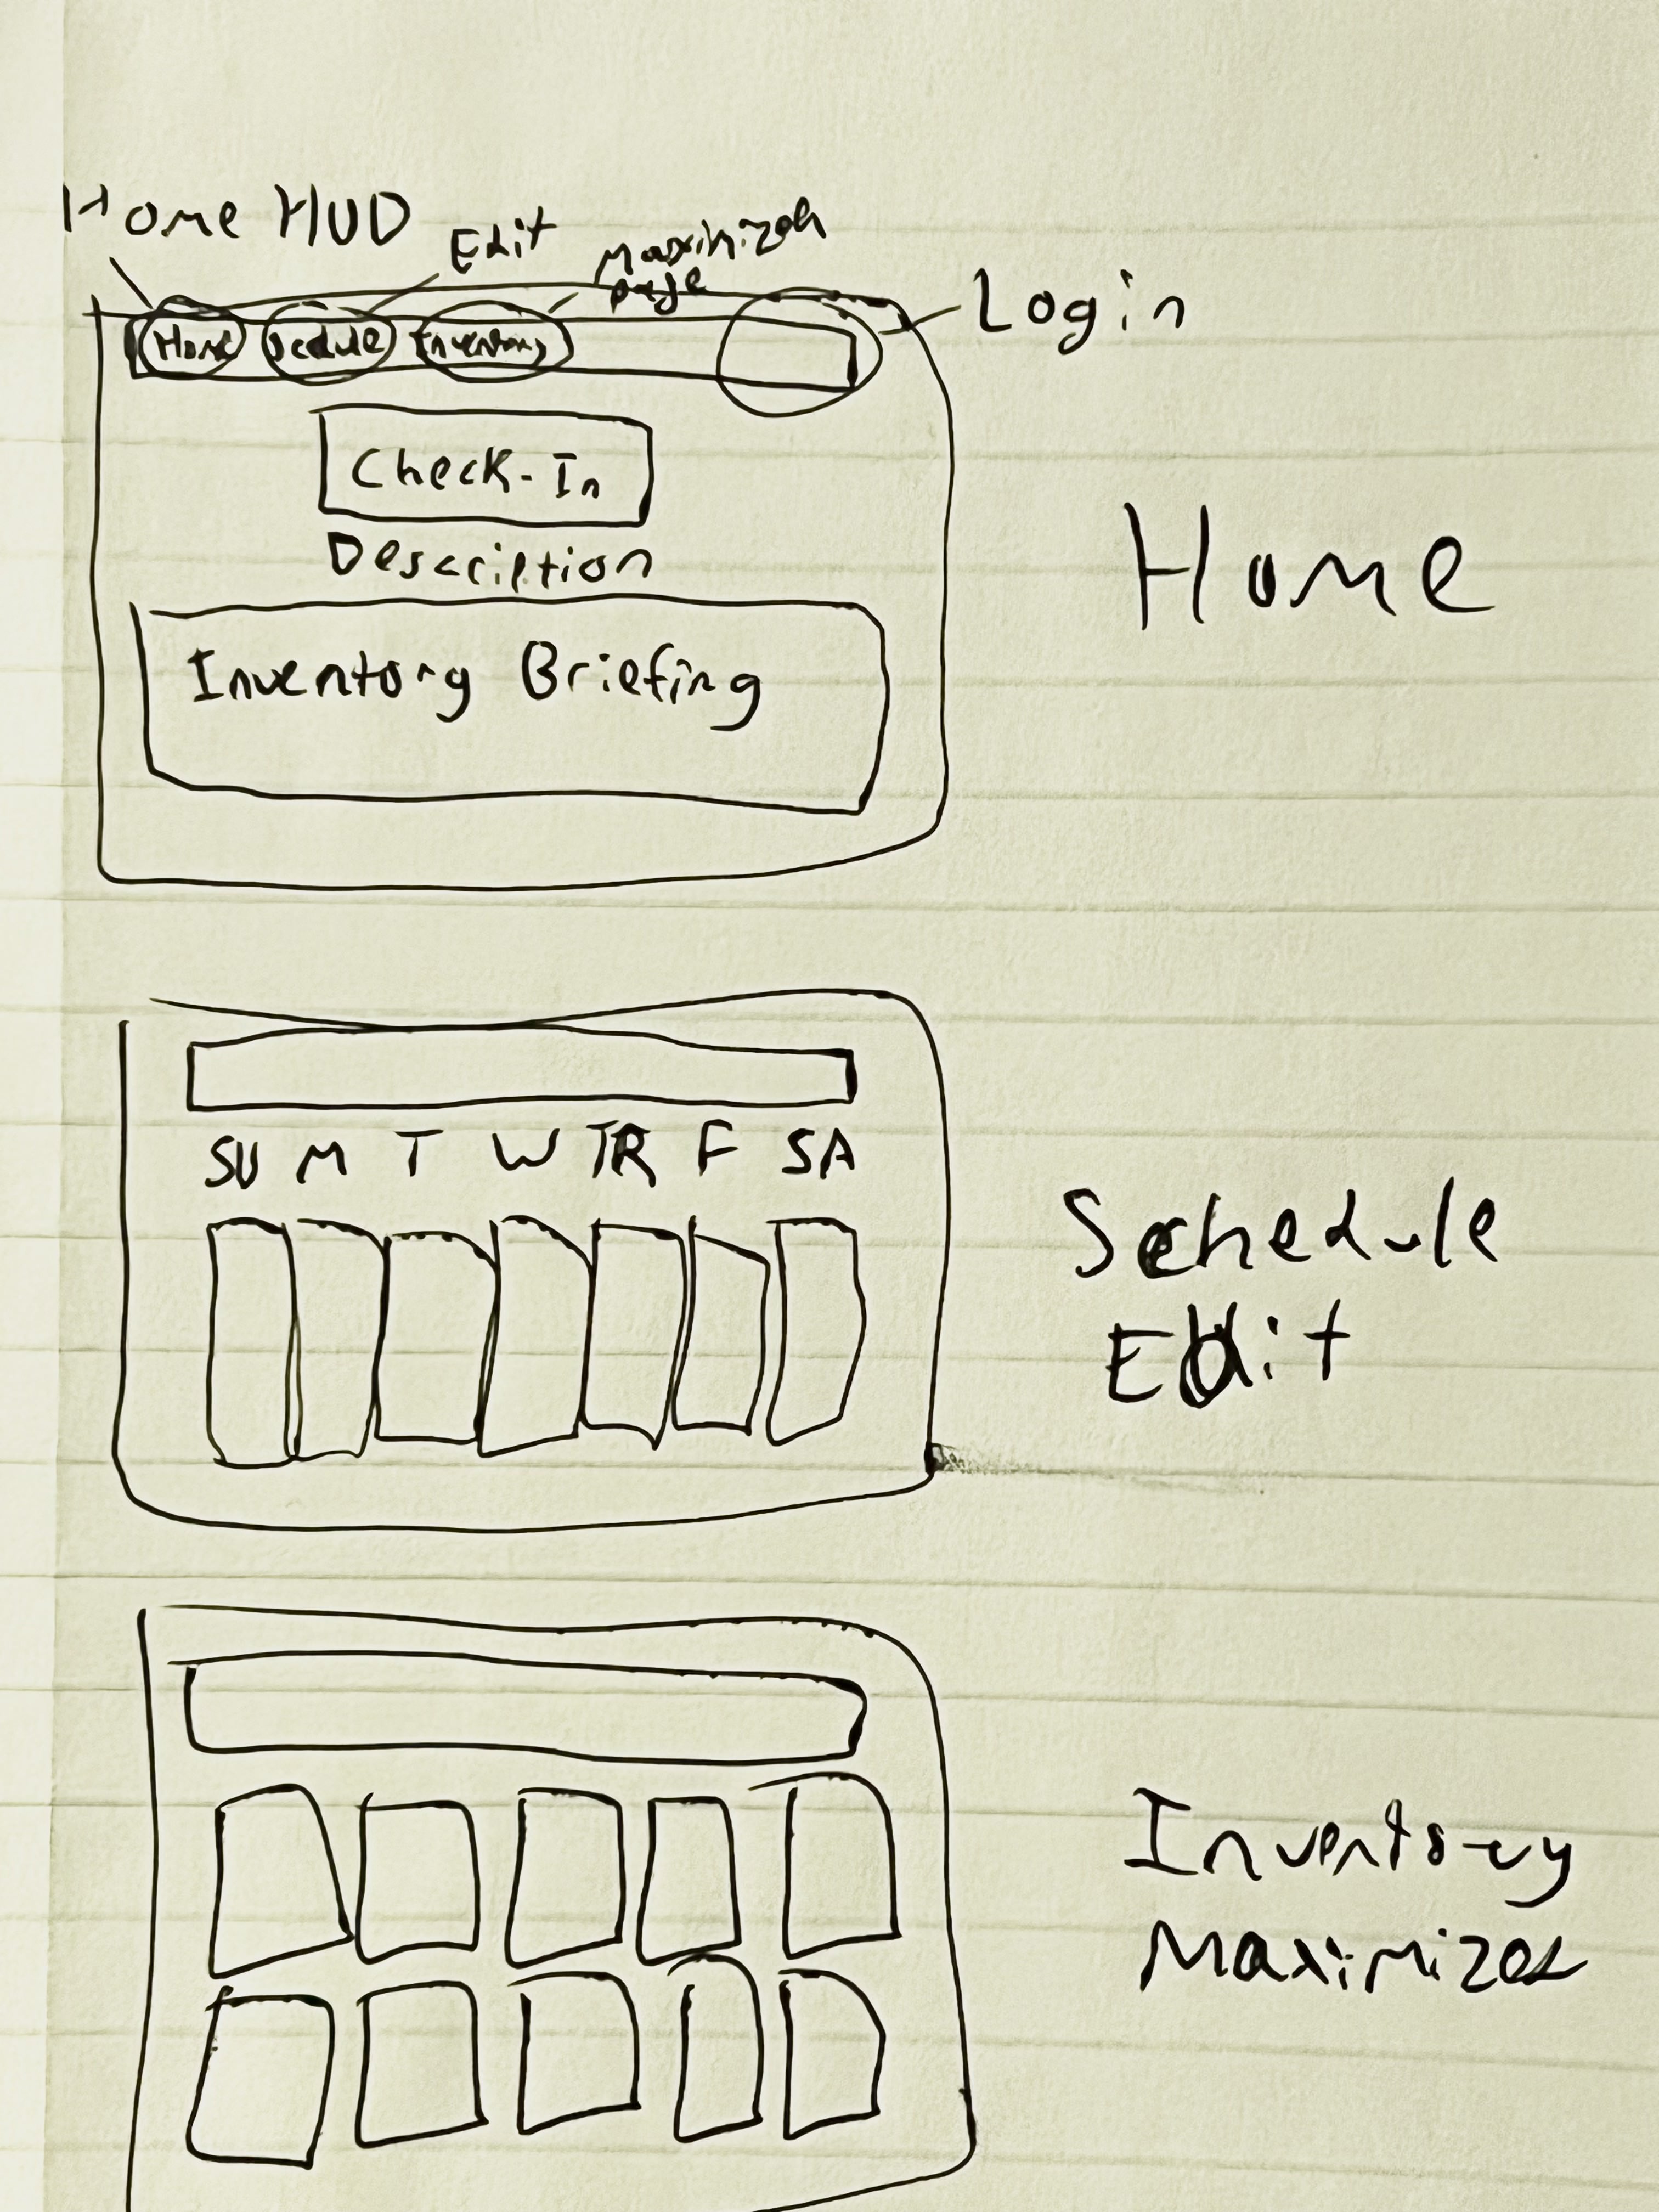 Home HUD
Edit
Maximizer
page
Login
Home
Inventory
Check-In
Description
Home
Inventory Briefing
SU M T W TR F SA
Schedule
Edit
Inventory
Maximizer